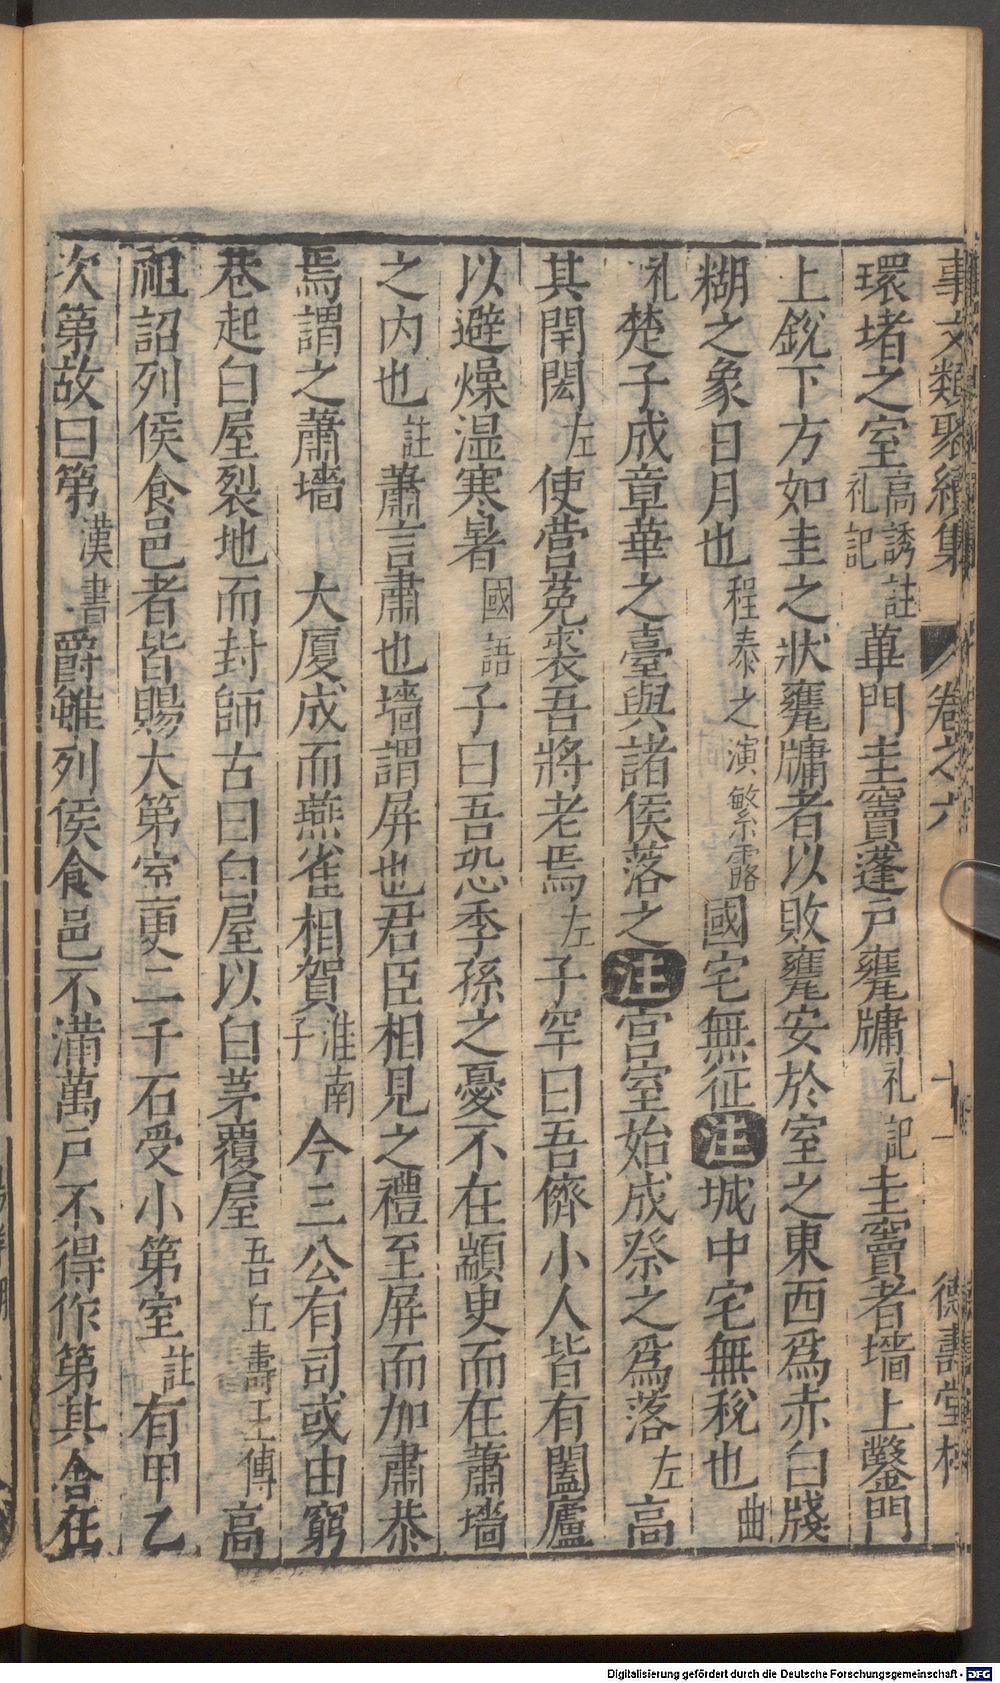 事文類聚續集 卷之六 十一 德壽堂梓
環堵之室高誘註礼記蓽門圭竇蓬戸甕牖礼記圭竇者墻上鑿門
上銳下方如圭之狀甕牖者以敗甕安於室之東西爲赤白牋
糊之象日月也程泰之演繁露國宅無征注城中宅無稅也曲
礼楚子成章華之臺與諸侯落之注宮室始成祭之爲落左高
其閈閎左使營菟裘吾將老焉左子罕曰吾儕小人皆有闔廬
以避燥湿寒暑國語子曰吾恐季孫之憂不在顓臾而在蕭墻
之内也註蕭言肅也墻謂屏也君臣相見之禮至屏而加肅恭
焉謂之蕭墻 大厦成而燕雀相賀淮南子今三公有司或由窮
巷起白屋裂地而封師古曰白屋以白茅覆屋吾丘壽王傳高
祖詔列侯食邑者皆賜大第室吏二千石受小第室註有甲乙
次第故曰第漢書爵雖列侯食邑不滿萬戸不得作第其舍在
Digitalisierung gefördert durch die Deutsche Forschungsgemeinschaft - DFG